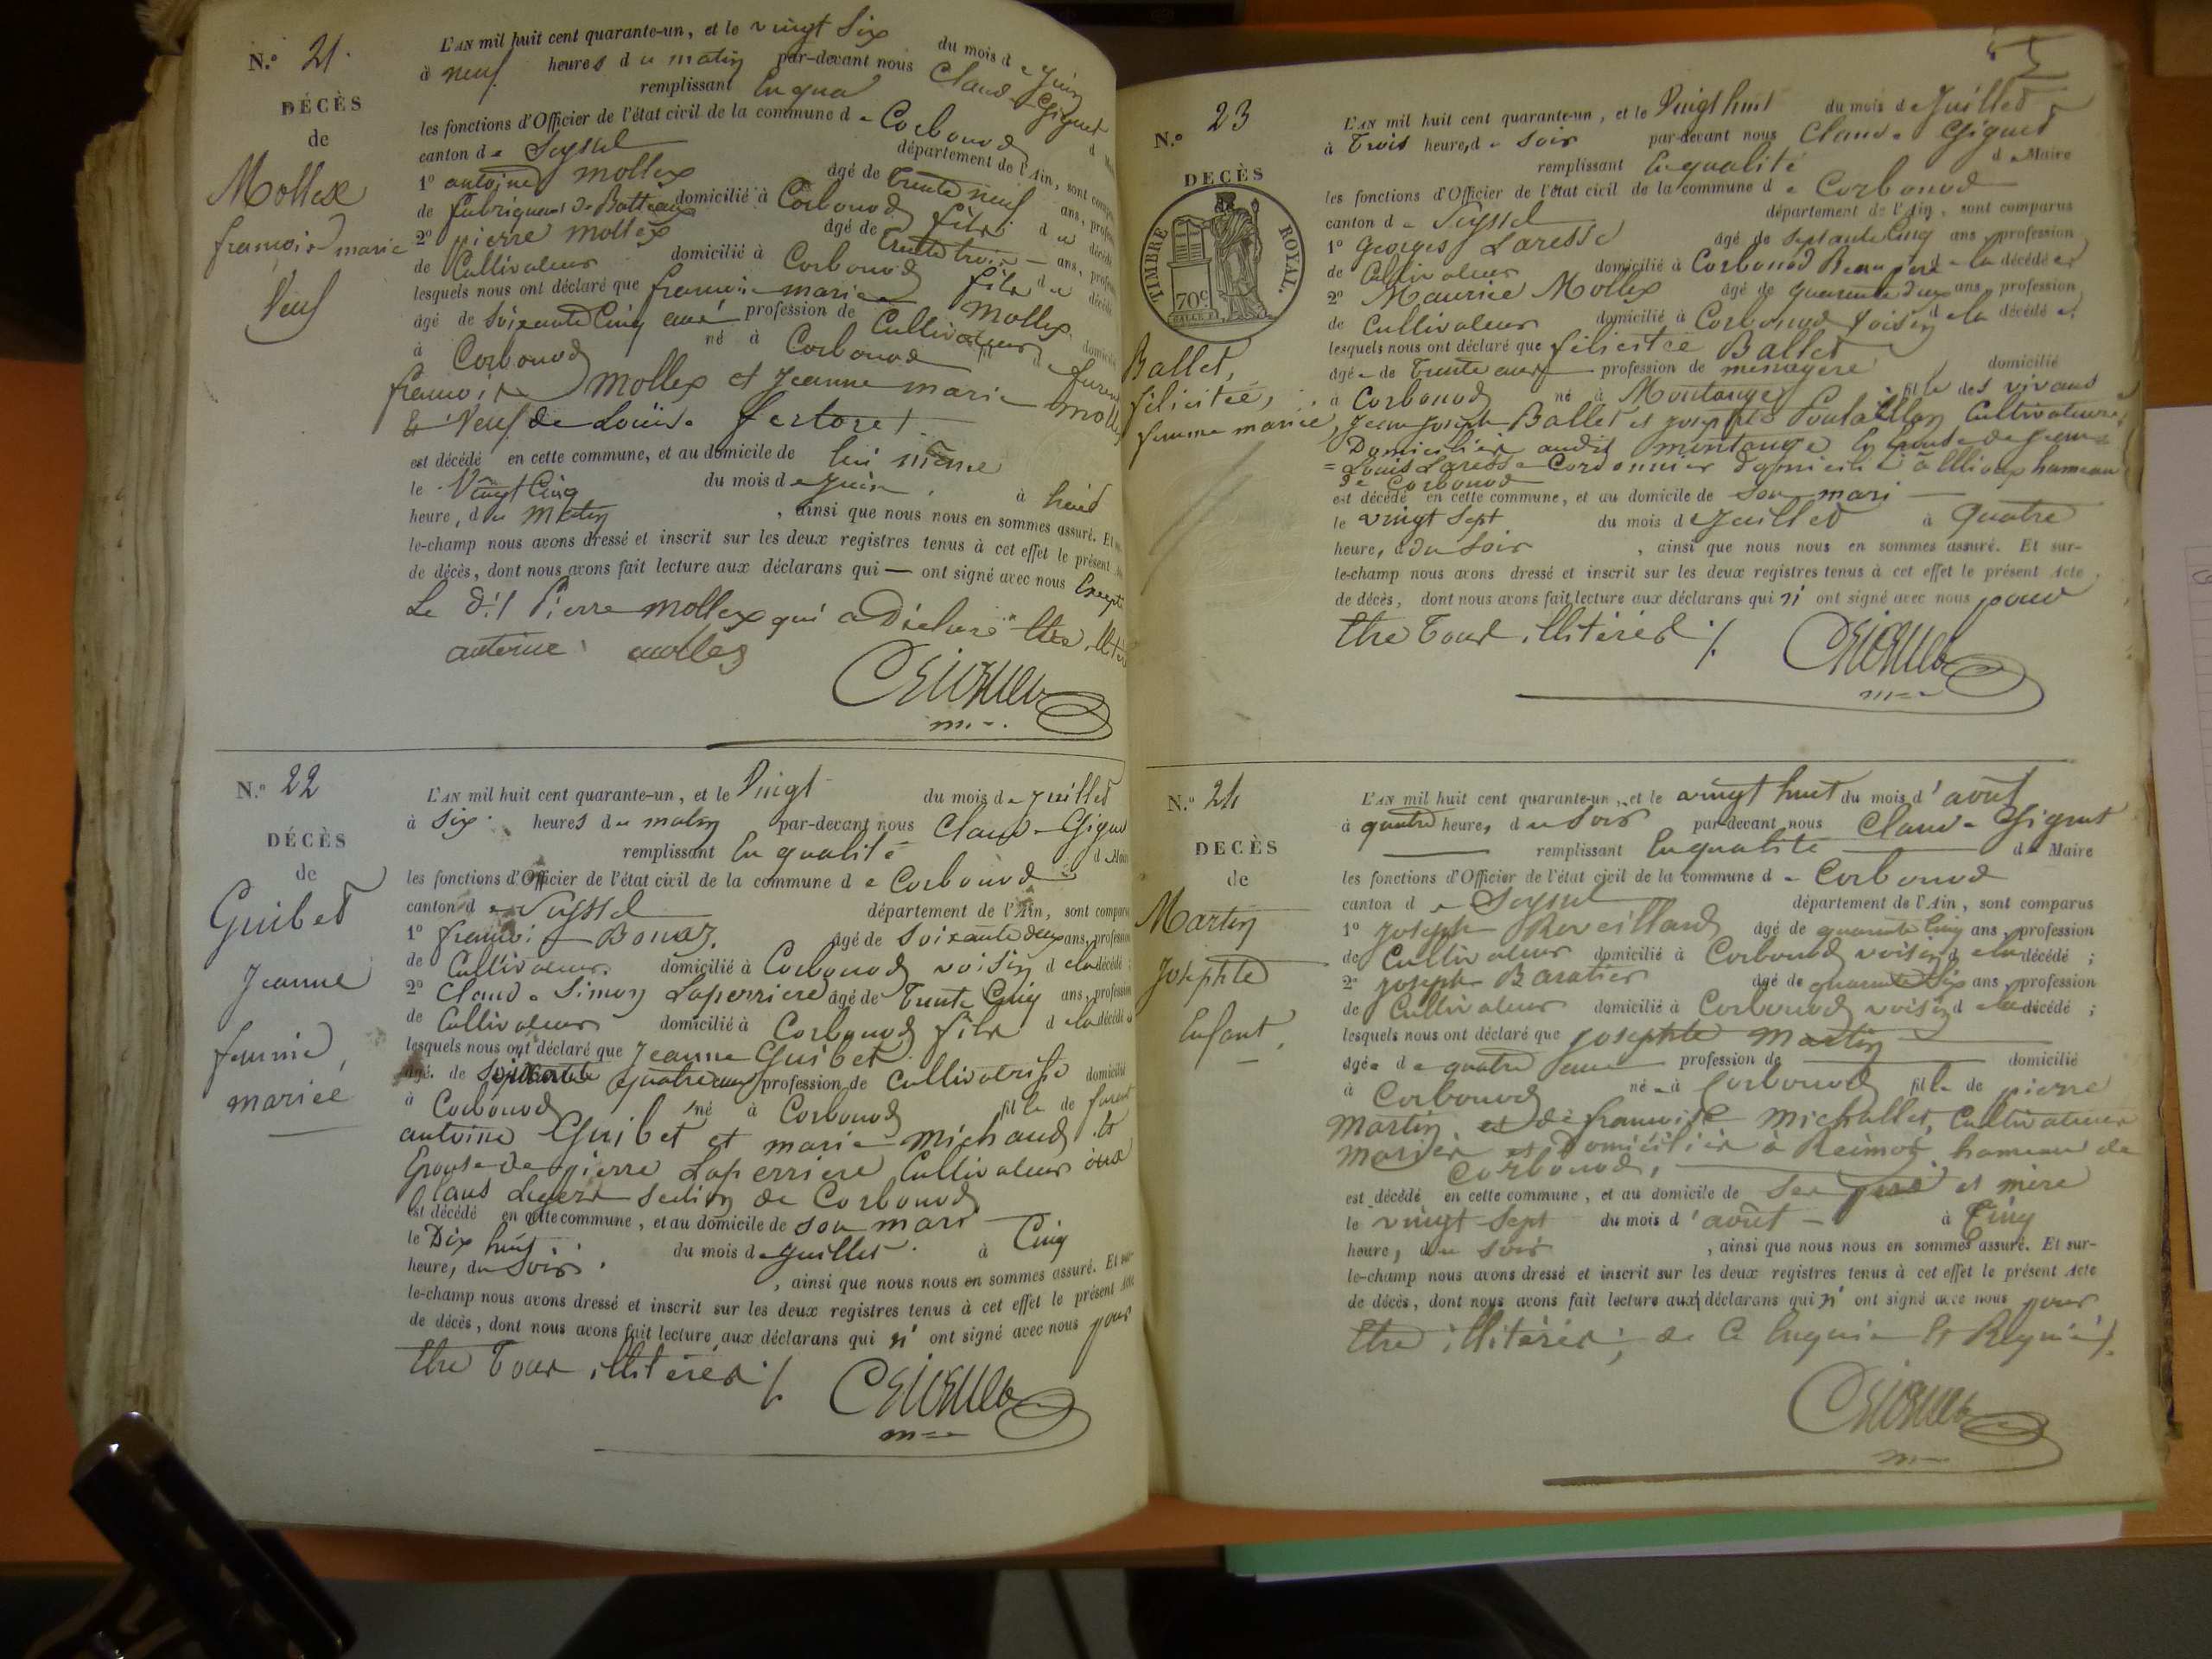 N.º 21.
DÉCÈS
de
Mollex
françois marie
Veuf
L'AN mil huit cent quarante-un, et le vingt six du mois de Juin
à neuf heures du matin par-devant nous Claude Giguet
remplissant En qua
les fonctions d'Officier de l'état civil de la commune de Corbonod
canton de Seyssel département de l'Ain, sont
1º antoine mollex âgé de trente neuf ans,
de fabriquant de Batteaux domicilié à Corbonod fils du
2º pierre mollex âgé de trente trois ans,
de Cultivateur domicilié à Corbonod fils du
lesquels nous ont déclaré que françois marie Mollex
âgé de soixante Cinq ans profession de Cultivateur
à Corbonod né à Corbonod
françois Mollex et Jeanne marie
& Veuf de Louise fertoret
est décédé en cette commune, et au domicile de lui même
le Vingt Cinq du mois de Juin, à huit
heure, du Matin, ainsi que nous nous en sommes assuré. Et
le-champ nous avons dressé et inscrit sur les deux registres tenus à cet effet le présent
de décès, dont nous avons fait lecture aux déclarans qui — ont signé avec nous Excepté
Le dit Pierre mollex qui a Déclaré être
antoine mollex
N.º 22
DÉCÈS
de
Guibet
Jeanne
femme
mariée
L'AN mil huit cent quarante-un, et le Vingt du mois de Juillet
à six heures du matin par-devant nous Claude Giguet
remplissant En qualité de Maire
les fonctions d'Officier de l'état civil de la commune de Corbonod
canton de Seyssel département de l'Ain, sont comparus
1º françois Bonaz. âgé de soixante deux ans, profession
de Cultivateur. domicilié à Corbonod voisin de la décédé;
2º Claude Simon Laperriere âgé de trente Cinq ans, profession
de Cultivateur domicilié à Corbonod fils de la décédé
lesquels nous ont déclaré que Jeanne Guibet
âgé. de quatre ans profession de Cultivatrise domicilié
à Corbonod né à Corbonod fille de
antoine Guibet et marie Michaud &
Epouse de pierre Laperriere Cultivateur
section de Corbonod
est décédé en cette commune, et au domicile de son mari
le Dix huit du mois de Juillet. à Cinq
heure, du Soir, ainsi que nous nous en sommes assuré. Et sur-
le-champ nous avons dressé et inscrit sur les deux registres tenus à cet effet le présent Acte
de décès, dont nous avons fait lecture aux déclarans qui n' ont signé avec nous pour
être tous illitérés ./.
N.º 23
DECÈS
de
TIMBRE ROYAL.
70c
Ballet,
félicitée,
femme mariée,
L'AN mil huit cent quarante-un, et le Vingt huit du mois de Juillet
à Trois heure, du soir par-devant nous Claude Giguet
remplissant En qualité de Maire
les fonctions d'Officier de l'état civil de la commune de Corbonod
canton de Seyssel département de l'Ain, sont comparus
1º Georges Laresse âgé de septante Cinq ans, profession
de Cultivateur domicilié à Corbonod Beau père de la décédée
2º Maurice Mollex âgé de quarante deux ans, profession
de Cultivateur domicilié à Corbonod voisin de la décédé
lesquels nous ont déclaré que félicitée Ballet
âgée de trente ans profession de menagère domicilié
à Corbonod né à Montange fille des vivans
Jean Joseph Ballet et Josephte Cultivateurs,
Domiciliés audit montange Epouse de Jean
= Louis Laresse Cordonnier domicilié à hameau
de Corbonod
est décédé en cette commune, et au domicile de son mari
le vingt sept du mois de Juillet à Quatre
heure, du Soir, ainsi que nous nous en sommes assuré. Et sur-
le-champ nous avons dressé et inscrit sur les deux registres tenus à cet effet le présent Acte
de décès, dont nous avons fait lecture aux déclarans qui n' ont signé avec nous pour
être tous illitérés ./.
N.º 24
DECÈS
de
Martin
Josephte
Enfant,
L'AN mil huit cent quarante-un, et le vingt huit du mois d'août
à quatre heure, du soir par-devant nous Claude Giguet
remplissant En qualité de Maire
les fonctions d'Officier de l'état civil de la commune de Corbonod
canton de Seyssel département de l'Ain, sont comparus
1º Joseph Reveillard âgé de quarante Cinq ans, profession
de Cultivateur domicilié à Corbonod voisin de la décédé;
2º Joseph Baratier âgé de quarante Six ans, profession
de Cultivateur domicilié à Corbonod voisin de la décédé;
lesquels nous ont déclaré que Josephte Martin
âgée de quatre ans profession de domicilié
à Corbonod née à Corbonod fille de pierre
Martin et de françoise Michallet, Cultivateurs
Mariés et Domiciliés à hameau de
Corbonod,
est décédé en cette commune, et au domicile de ses père et mère
le vingt sept du mois d'août à Cinq
heure, du soir, ainsi que nous nous en sommes assuré. Et sur-
le-champ nous avons dressé et inscrit sur les deux registres tenus à cet effet le présent Acte
de décès, dont nous avons fait lecture aux déclarans qui n' ont signé avec nous pour
être illitérés; de Ce Enquis & Requis ./.